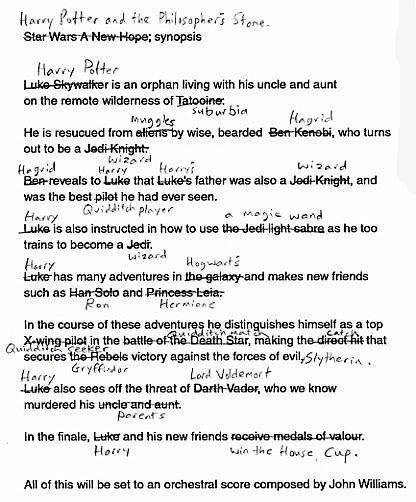 Harry Potter and the Philosopher's Stone.
Star Wars A New Hope; synopsis
Harry Potter
Luke Skywalker is an orphan living with his uncle and aunt
on the remote wilderness of Tatooine.
suburbia
muggles Hagrid
He is resucued from aliens by wise, bearded Ben Kenobi, who turns
out to be a Jedi Knight.
wizard
Hagrid Harry Harry's wizard
Ben reveals to Luke that Luke's father was also a Jedi Knight, and
was the best pilot he had ever seen.
Quidditch player
Harry a magic wand
Luke is also instructed in how to use the Jedi light sabre as he too
trains to become a Jedi.
wizard
Harry Hogwarts
Luke has many adventures in the galaxy and makes new friends
such as Han Solo and Princess Leia.
Ron Hermione
In the course of these adventures he distinguishes himself as a top
Quidditch match catch
X-wing pilot in the battle of the Death Star, making the direct hit that
Quidditch Seeker
secures the Rebels victory against the forces of evil, Slytherin.
Gryffindor
Harry Lord Voldemort
Luke also sees off the threat of Darth Vader, who we know
murdered his uncle and aunt.
parents
In the finale, Luke and his new friends receive medals of valour.
Harry win the House Cup.
All of this will be set to an orchestral score composed by John Williams.